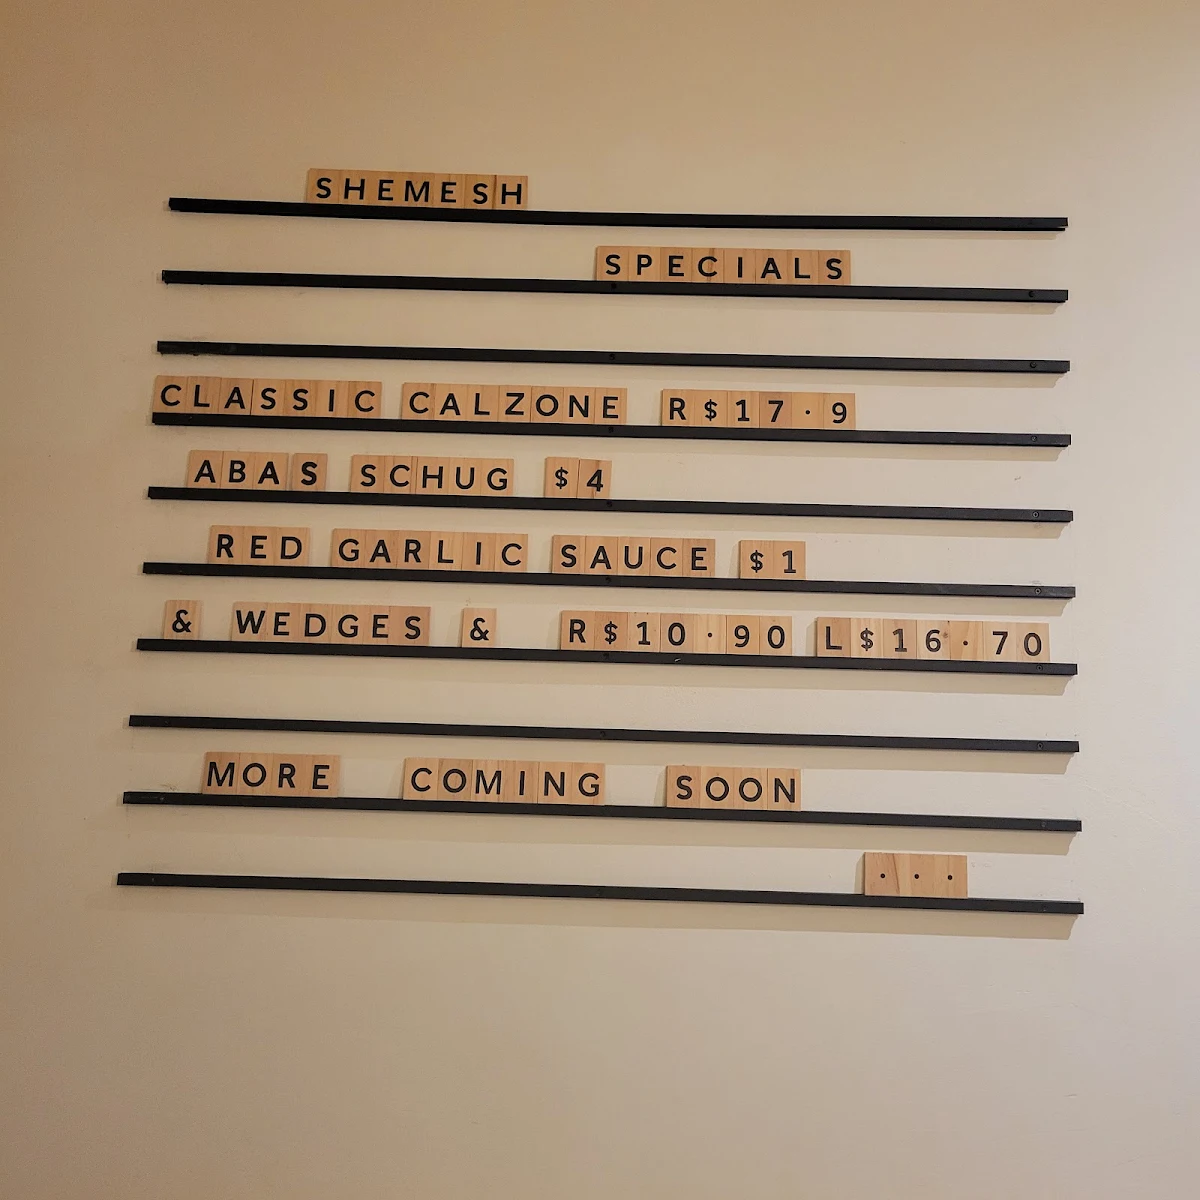 SHEMESH
SPECIALS
CLASSIC CALZONE R$17·9
ABAS SCHUG $4
RED GARLIC SAUCE $1
& WEDGES & R$10·90 L$16·70
MORE COMING SOON
...